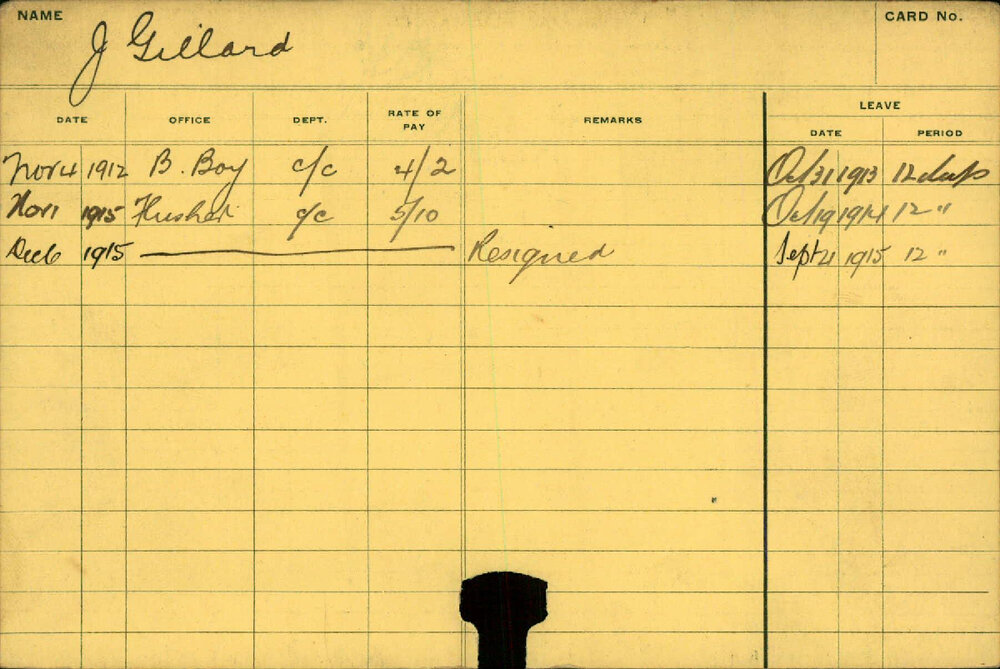 NAME
CARD No.
J Gillard
LEAVE
DATE OFFICE DEPT. RATE OF PAY REMARKS DATE PERIOD
Nov 4 1912 B. Boy c/c 4/2 Oct 31 1913 12 days
Nov 1 1915 Flusher c/c 5/10 Oct 19 1914 12 "
Dec 6 1915 Resigned Sept 21 1915 12 "